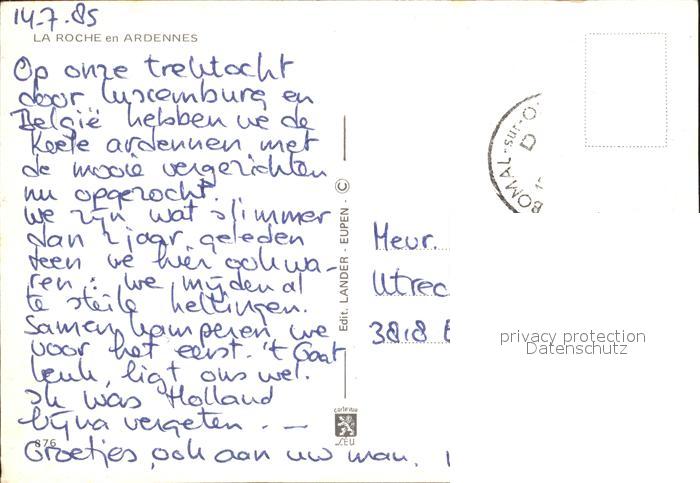 14.7.85
LA ROCHE en ARDENNES
Op onze trektocht
door Luxemburg en
België hebben we de
heele ardennen met
de mooie vergezichten
nu opgezocht.
We zijn wat slimmer
dan 2 jaar geleden
toen we hier ook wa-
ren : we mijden al
te steile hellingen.
Samen kamperen we
voor het eerst. 't Gaat
leuk, ligt ons wel.
Ik was Holland
bijna vergeten . —
876
Groetjes, ook aan uw man.
Edit. LANDER - EUPEN - ©
cartevue
LCEU
BOMAL-sur-O.
D
Meur.
Utrec
3818
privacy protection
Datenschutz